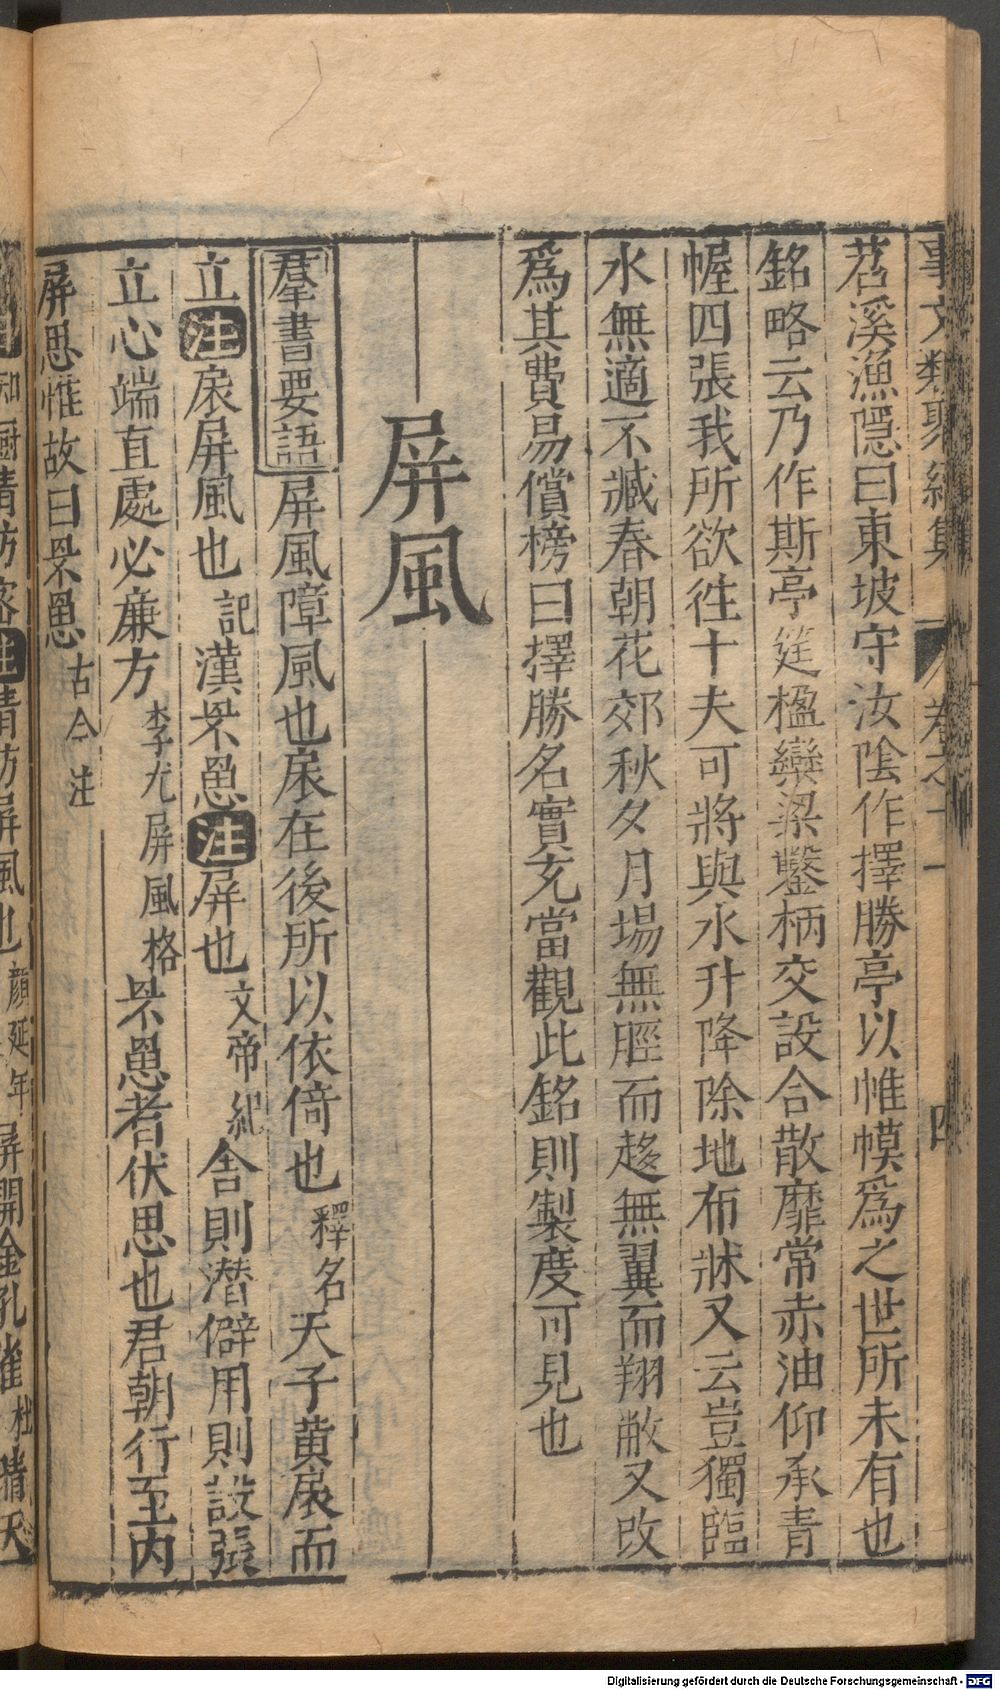 事文類聚續集 卷之十一 四
苕溪漁隱曰東坡守汝陰作擇勝亭以帷幕爲之世所未有也
銘略云乃作斯亭筵楹欒梁鑿枘交設合散靡常赤油仰承青
幄四張我所欲徃十夫可將與水升降除地布牀又云豈獨臨
水無適不臧春朝花郊秋夕月場無脛而趍無翼而翔敝又改
爲其費易償榜曰擇勝名實充當觀此銘則製度可見也
屏風
羣書要語屏風障風也扆在後所以依倚也釋名天子黄扆而
立注扆屏風也記漢罘罳注屏也文帝紀舍則潜僻用則設張
立心端直處必廉方李尤屏風格罘罳者伏思也君朝行至内
屏思惟故曰罘罳古今注
知廚清防客注清防屏風也顔延年屏開金孔雀杜晴天
Digitalisierung gefördert durch die Deutsche Forschungsgemeinschaft - DFG